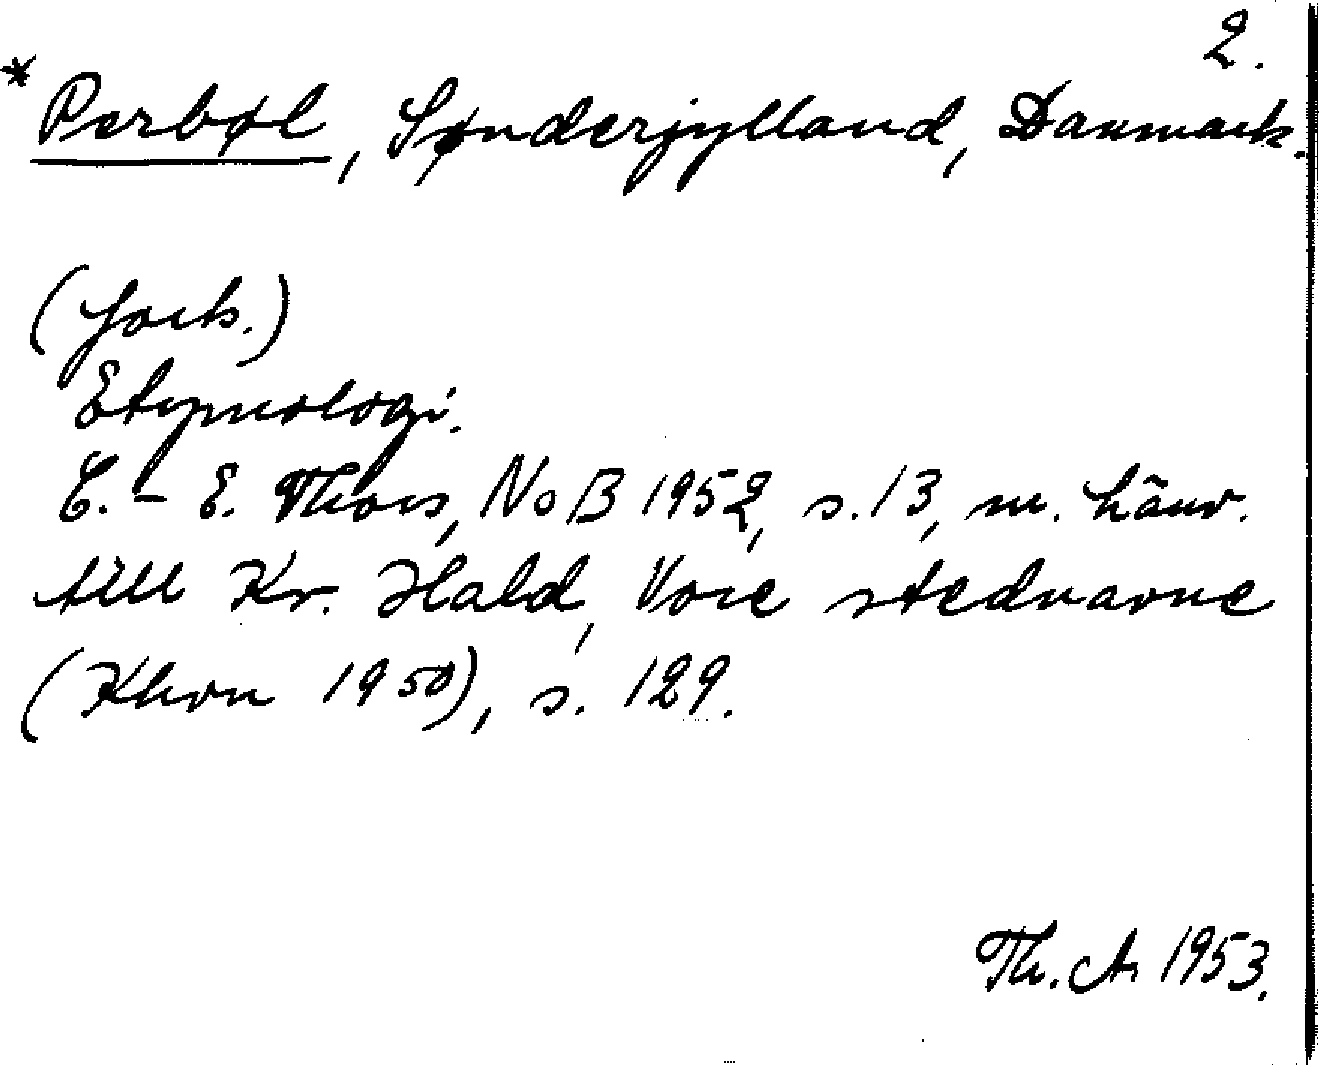 2.
* Perbøl, Sønderjylland, Danmark.
(fork.)
Etymologi.
C.-E. Thors, NoB 1952, s. 13, m. hänv.
till Kr. Hald, Vore stednavne
(Khvn 1950), s. 129.
Th. A 1953.